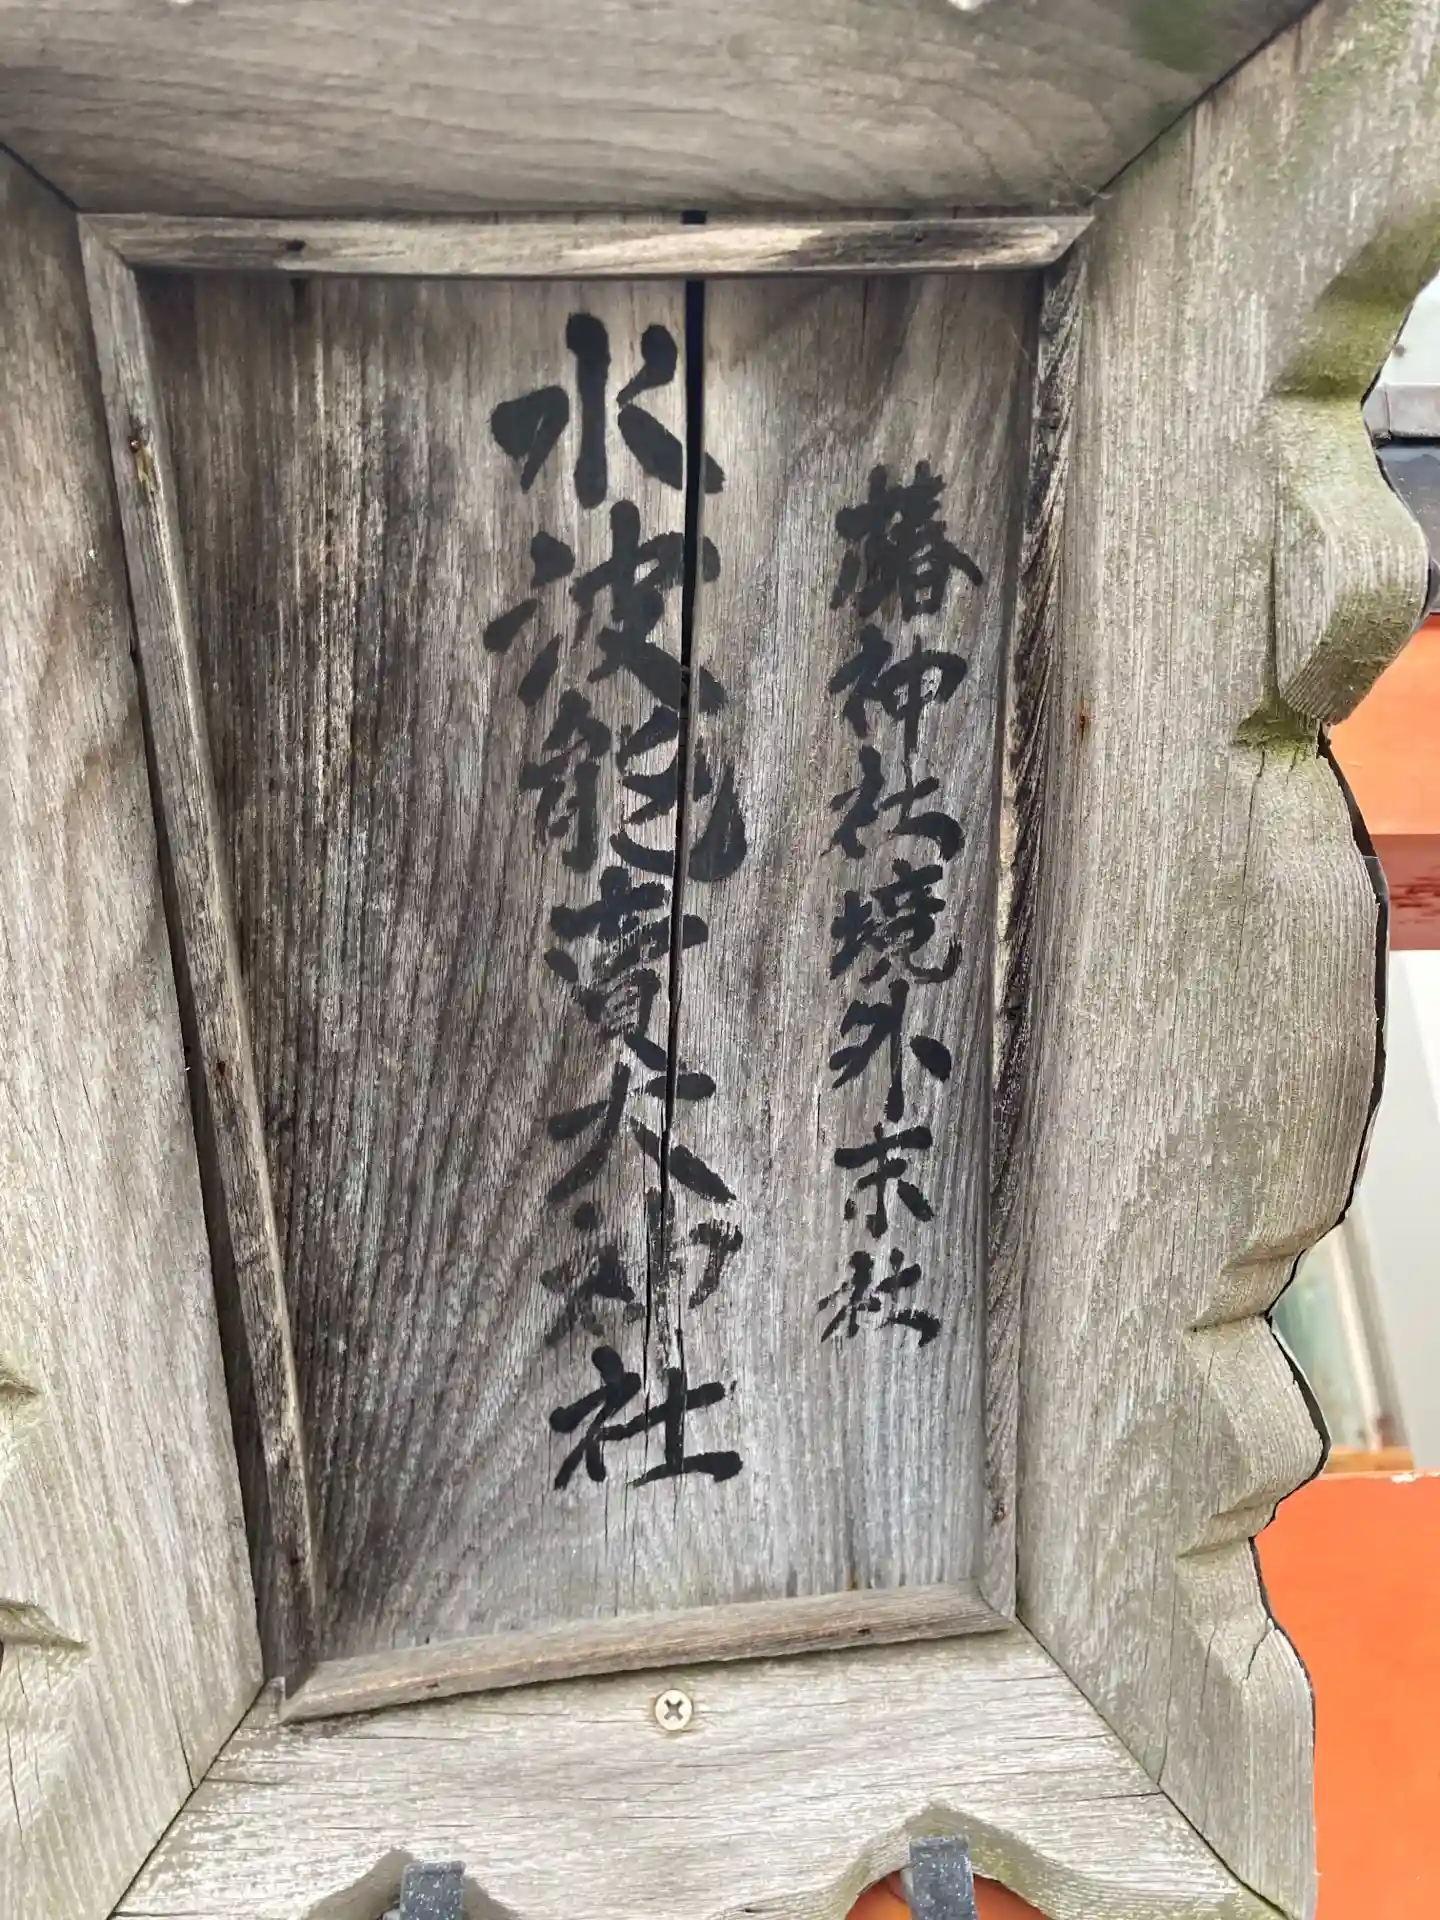 椿神社境外末社
水波能賣大神社